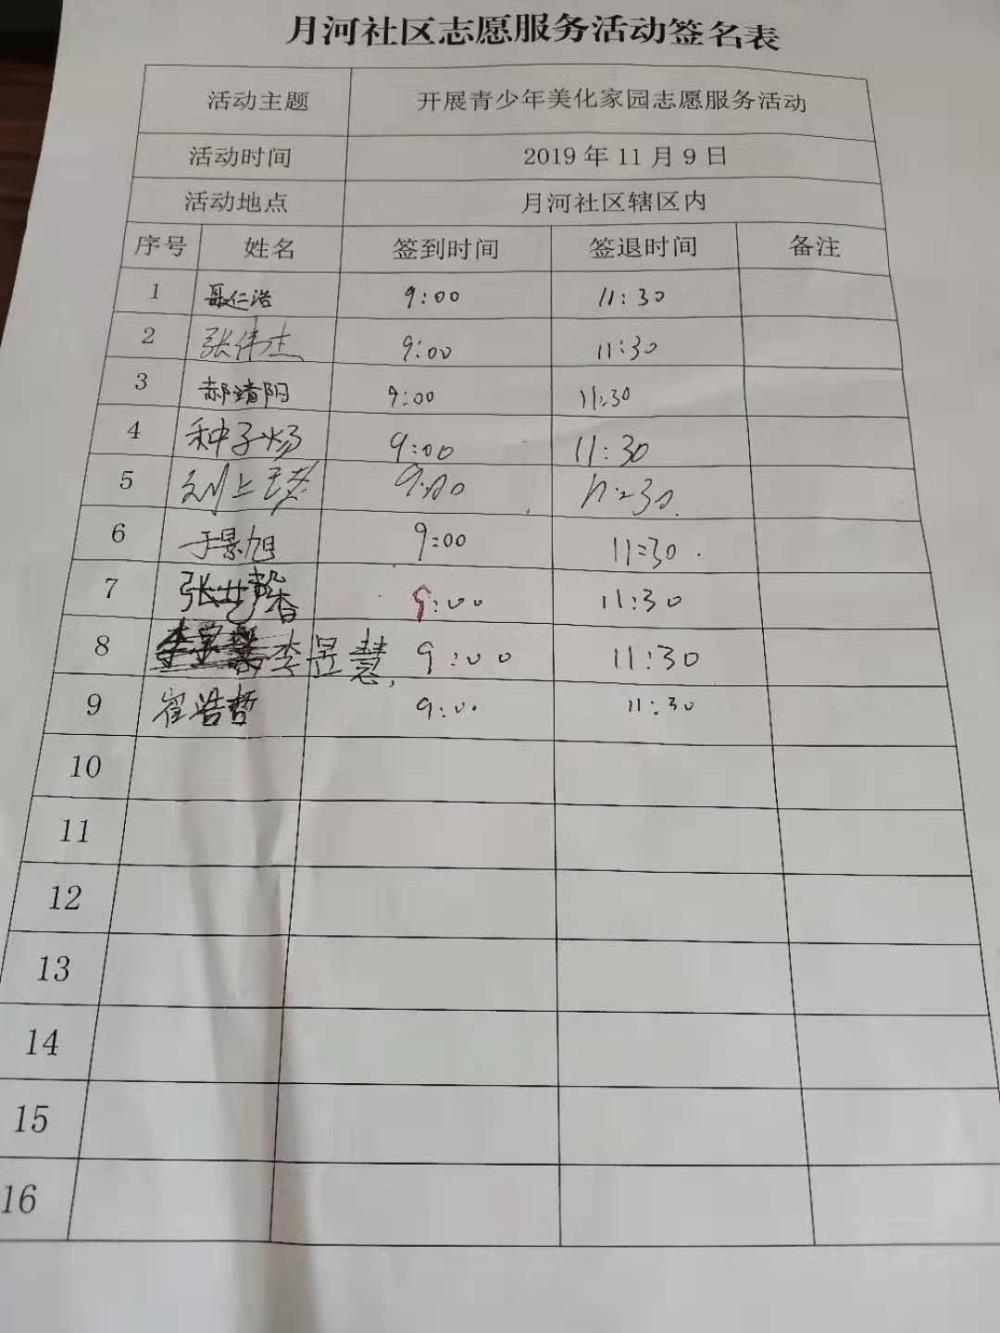 月河社区志愿服务活动签名表
活动主题 开展青少年美化家园志愿服务活动
活动时间 2019 年 11 月 9 日
活动地点 月河社区辖区内
序号 姓名 签到时间 签退时间 备注
1 聂仁浩 9:00 11:30
2 张伟杰 9:00 11:30
3 郝清阳 9:00 11:30
4 种子炀 9:00 11:30
5 刘上 9:00 11:30
6 于景旭 9:00 11:30
7 张艺馨 9:00 11:30
8 李昱慧 9:00 11:30
9 崔浩哲 9:00 11:30
10
11
12
13
14
15
16